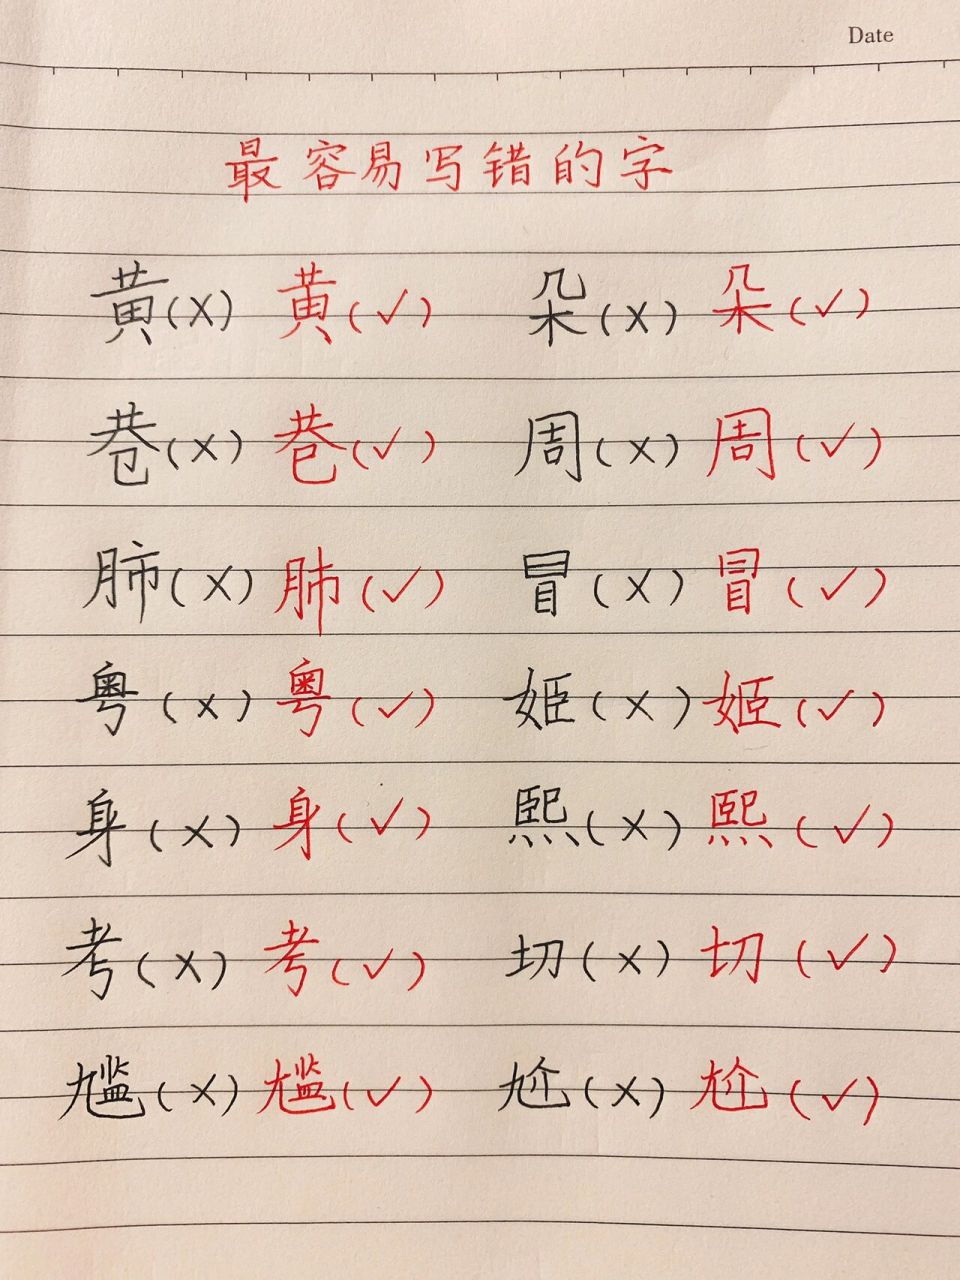 Date
最容易写错的字
黄(×) 黄(√) 朵(×) 朵(√)
巷(×) 巷(√) 周(×) 周(√)
肺(×) 肺(√) 冒(×) 冒(√)
粤(×) 粤(√) 姬(×) 姬(√)
身(×) 身(√) 熙(×) 熙(√)
考(×) 考(√) 切(×) 切(√)
尴(×) 尴(√) 尬(×) 尬(√)